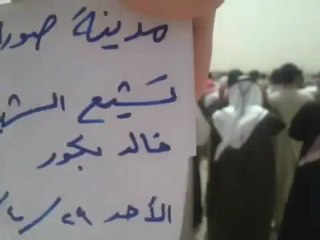 مدينة صورا
تشيع الشـ
خالد بكور
الأحد ٢٩/٤/